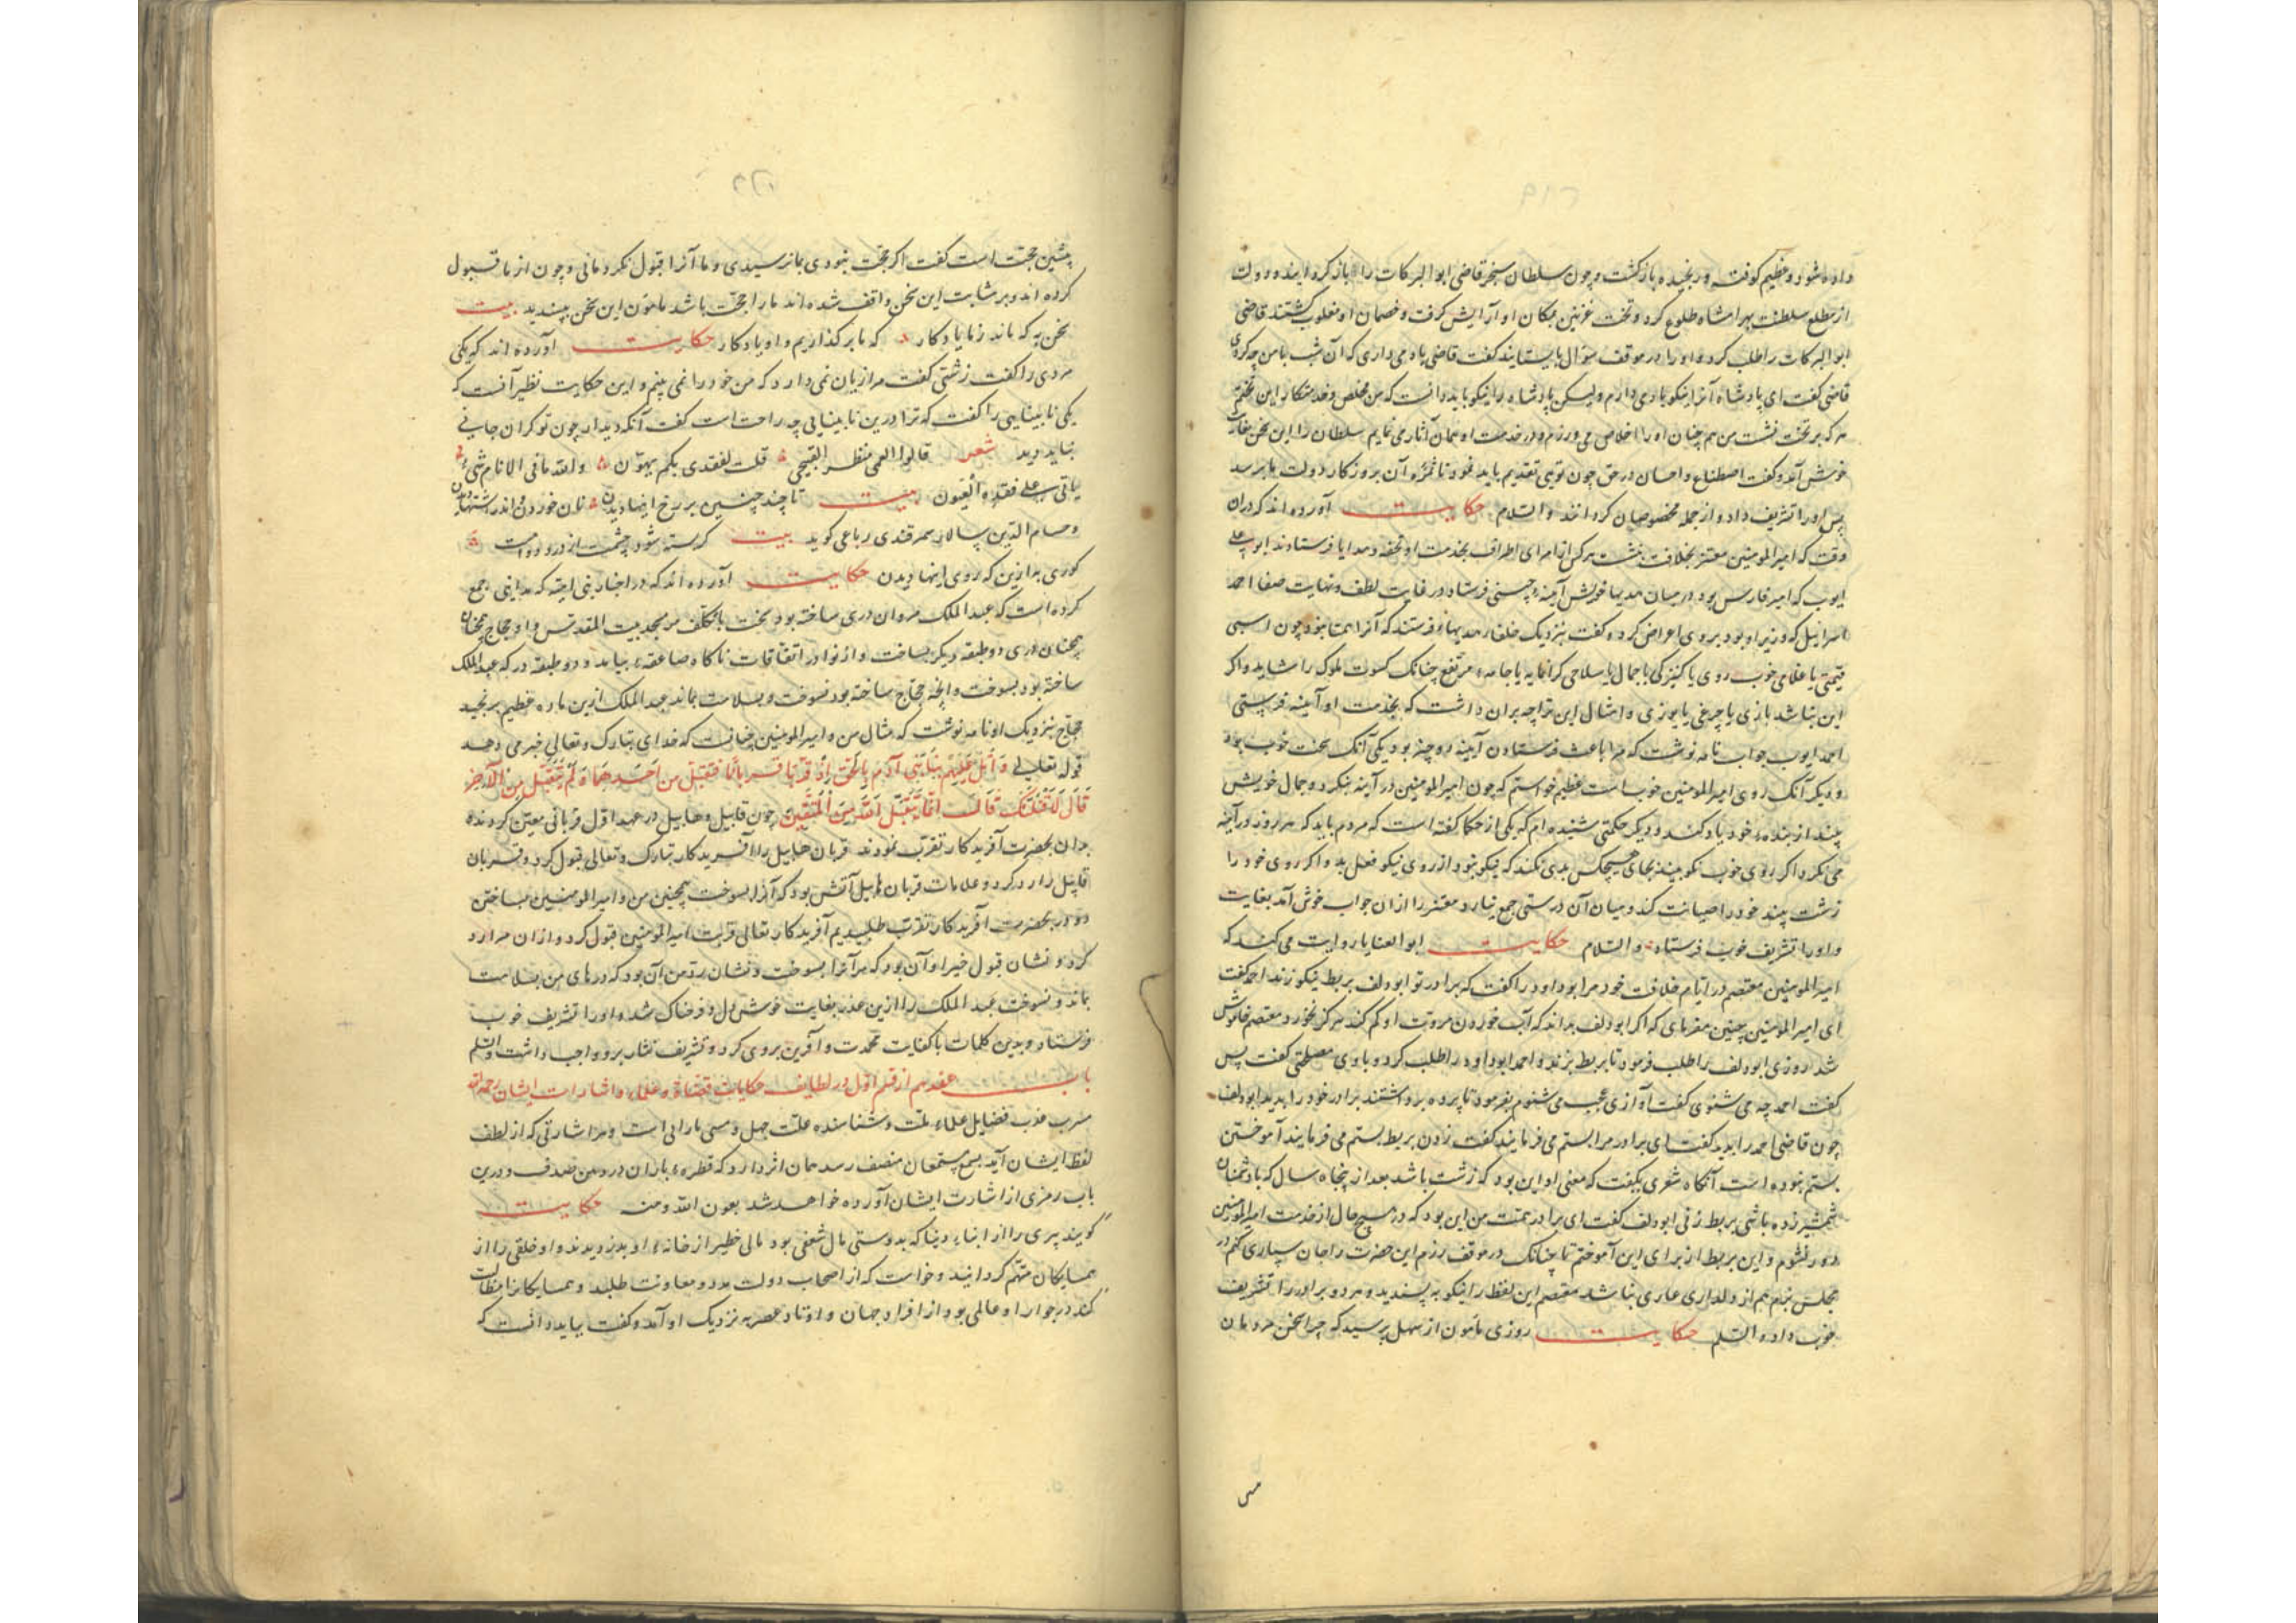 داده شود و عظیم کوفته و رنجیده بازگشت و چون سلطان سنجر قاضی ابوالبرکات را بازگردانیده و دولت
از مطلع سلطنت بهرامشاه طلوع کرد و تخت غزنین بمکان او آرایش گرفت و خصمان او مغلوب گشتند قاضی
ابوالبرکات را طلب کرد و او را در موقف سؤال بایستانید گفت قاضی یاد می داری که آن شب با من چه کردی
قاضی گفت ای پادشاه آنرا نیکو یاد می دارم ولیکن پادشاه را نیکو باید دانست که من مخلص و خدمتکار این تختم
هر که بر تخت نشست من همچنان او را اخلاص می ورزم و در خدمت او همان آثار می نمایم سلطان را این سخن بغایت
خوش آمد و گفت اصطناع و احسان در حق چون تویی تقدیم باید فرمود تا ثمره آن بروزگار دولت ما برسد
پس او را تشریف داد و از جمله مخصوصان گردانید والسلام حکایت آورده اند که در آن
وقت که امیرالمومنین معتز بخلافت نشست هر کس از امرای اطراف بخدمت او تحفه و هدایا فرستادند ابو علی
ایوب که امیر فارس بود در میان هدیها خویش آینه چینی فرستاد در غایت لطف و نهایت صفا احمد
اسرائیل که وزیر او بود بر وی اعتراض کرد و گفت بنزدیک خلفا هدیهاء فرستند که آنرا همتا نبود چون اسبی
قیمتی یا غلامی خوب روی یا کنیزکی با جمال یا سلاحی گرانمایه یا جامه مرتفع چنانک کسوت ملوک را شاید و اگر
این نباشد بازی یا چرغی یا یوزی و امثال این ترا چه بر آن داشت که بخدمت او آینه فرستی
احمد ایوب جواب نامه نوشت که مرا باعث فرستادن آینه دو چیز بود یکی آنک سخت خوب بود
و دیگر آنک روی امیرالمومنین خوبست عظیم خواستم که چون امیرالمومنین در آینه بنگرد و جمال خویش
بیند از بنده خود یاد کند و دیگر حکمتی شنیده ام که یکی از حکما گفته است که مردم باید که هر روز در آینه
می نگرد اگر روی خوب نکو بیند بجای هیچکس بدی نکند که نیکو نبود از روی نیکو فعل بد و اگر روی خود را
زشت بیند خود را صیانت کند و میان آن درستی جمع نیارد معتز را از آن جواب خوش آمد بغایت
و او را تشریف خوب فرستاد والسلام حکایت ابوالعینا روایت می کند که
امیرالمومنین معتصم در ایام خلافت خود مر ابو داود را گفت که برادر تو ابودلف بربط نیکو زند احمد گفت
ای امیرالمومنین چنین مفرمای که اگر ابودلف بداند که آب خوردن مروت او کم کند هرگز نخورد معتصم خاموش
شد روزی ابودلف را طلب فرمود تا بربط بزند و احمد ابو داود را طلب کرد و با وی مصلحتی گفت پس
گفت احمد چه می شنوی گفت آوازی عجب می شنوم بفرمود تا پرده برداشتند برادر خود را بدید ابودلف
چون قاضی احمد را بدید گفت ای برادر مرا بستم می فرمایند گفت زدن بربط بستم می فرمایند آموختن
بستم نبوده است آنگاه شعری بگفت که معنی او این بود که زشت باشد بعد از پنجاه سال که با دشمنان
شمشیر زده باشی بربط زنی ابودلف گفت ای برادر همت من این بود که در هیچ حال از خدمت امیرالمومنین
دور نشوم و این بربط از برای این آموختم تا چنانک در موقف رزم این حضرت را جان سپاری کنم در
مجلس بزم هم از دلداری عاری نباشد معتصم این لفظ را نیکو به پسندید و هر دو برادر را تشریف
خوب داد والسلم حکایت روزی مأمون از سهل پرسید که چرا سخن مردمان
پیشین حجت است گفت اگر حجت نبودی بما نرسیدی و ما آنرا قبول نکردمانی و چون از ما قبول
کرده اند و بر مثابت این سخن واقف شده اند ما را حجت باشد مامون این سخن بپسندید بیت
سخن به که ماند ز ما یادگار که ما برگذاریم و او یادگار حکایت آورده اند که یکی
مردی را گفت زشتی گفت مرا زیان نمی دارد که من خود را نمی بینم و این حکایت نظیر آنست که
یکی نابینایی را گفت که ترا درین نابینایی چه راحت است گفت آنکه دیدار چون تو گران جانی
نباید دید شعر قالوا العمی منظر القبیحی قلت لفقدی بکم یهون والله ما فی الانام شیء
یأتی علی فقده العیون بیت تا چند چنین بر رخ اینها دیدن نان خوردن و اندر اشتها دیدن
و حسام الدین سپالار سمرقندی رباعی گوید بیت گرسنه شود چشمت از درد و است
کوری به ازین که روی اینها دیدن حکایت آورده اند که در اخبار بنی امیه که مداینی جمع
کرده است که عبدالملک مروان دری ساخته بود سخت با تکلف مر مسجد بیت المقدس و او حجاج همچنان
همچنان دری دو طبقه دیگر بساخت و از نوادر اتفاقات ناگاه صاعقه بیامد و دو طبقه در که عبدالملک
ساخته بود بسوخت و آنچه حجاج ساخته بود نسوخت و بسلامت بماند عبدالملک ازین ماده عظیم برنجید
حجاج بنزدیک او نامه نوشت که مثال من و امیرالمومنین چنانست که خدای تبارک و تعالی خبر می دهد
قوله تعالی وَاتْلُ عَلَيْهِمْ نَبَأَ ابْنَيْ آدَمَ بِالْحَقِّ إِذْ قَرَّبَا قُرْبَانًا فَتُقُبِّلَ مِنْ أَحَدِهِمَا وَلَمْ يُتَقَبَّلْ مِنَ الْآخَرِ
قَالَ لَأَقْتُلَنَّكَ قَالَ إِنَّمَا يَتَقَبَّلُ اللَّهُ مِنَ الْمُتَّقِينَ چون قابیل و هابیل در عهد اول قربانی معین کردند
بدان بحضرت آفریدگار تقرب نمودند قربان هابیل را آفریدگار تبارک و تعالی قبول کرد و قربان
قابیل را رد کرد و علامات قربان هابیل آتش بود که آنرا بسوخت همچنین من و امیرالمومنین بساختن
دو در بحضرت آفریدگار تقرب طلبیدیم آفریدگار تعالی قربت امیرالمومنین قبول کرد و از آن مرا رد
کرد و نشان قبول خیر او آن بود که مر آنرا بسوخت و نشان رد من آن بود که درهای من بسلامت
بماند و نسوخت عبدالملک را ازین عذر بغایت خوش دل و فرحناک شد و او را تشریف خوب
فرستاد و بدین کلمات با کفایت محمدت و آفرین بر وی کرد و تشریف نثار بر وو واجب داشت والسلم
باب هفدهم از قسم اول در لطایف حکایات قضاة و علماء و اشارات ایشان رحمهم الله
مشرب عذب فضایل علماء ملت و شناسنده علت جهل و مس نادانی است و هر اشارتی که از لطف
لفظ ایشان آید بسمع مستمعان منصف رسد همان اثر دارد که قطره باران در دهن صدف و درین
باب رمزی از اشارت ایشان آورده خواهد شد بعون الله ومنه حکایت
گویند پیری را از ابناء دنیا که بدوستی مال شعفی بود مالی خطیر از خانه او بدزدیدند و او خلقی را از
همسایگان متهم گردانید و خواست که از اصحاب دولت مدد و معاونت طلبد و همسایگانرا مطالبت
کند در جوار او عالمی بود از افراد جهان و اوتاد عصر به نزدیک او آمد و گفت بباید دانست که